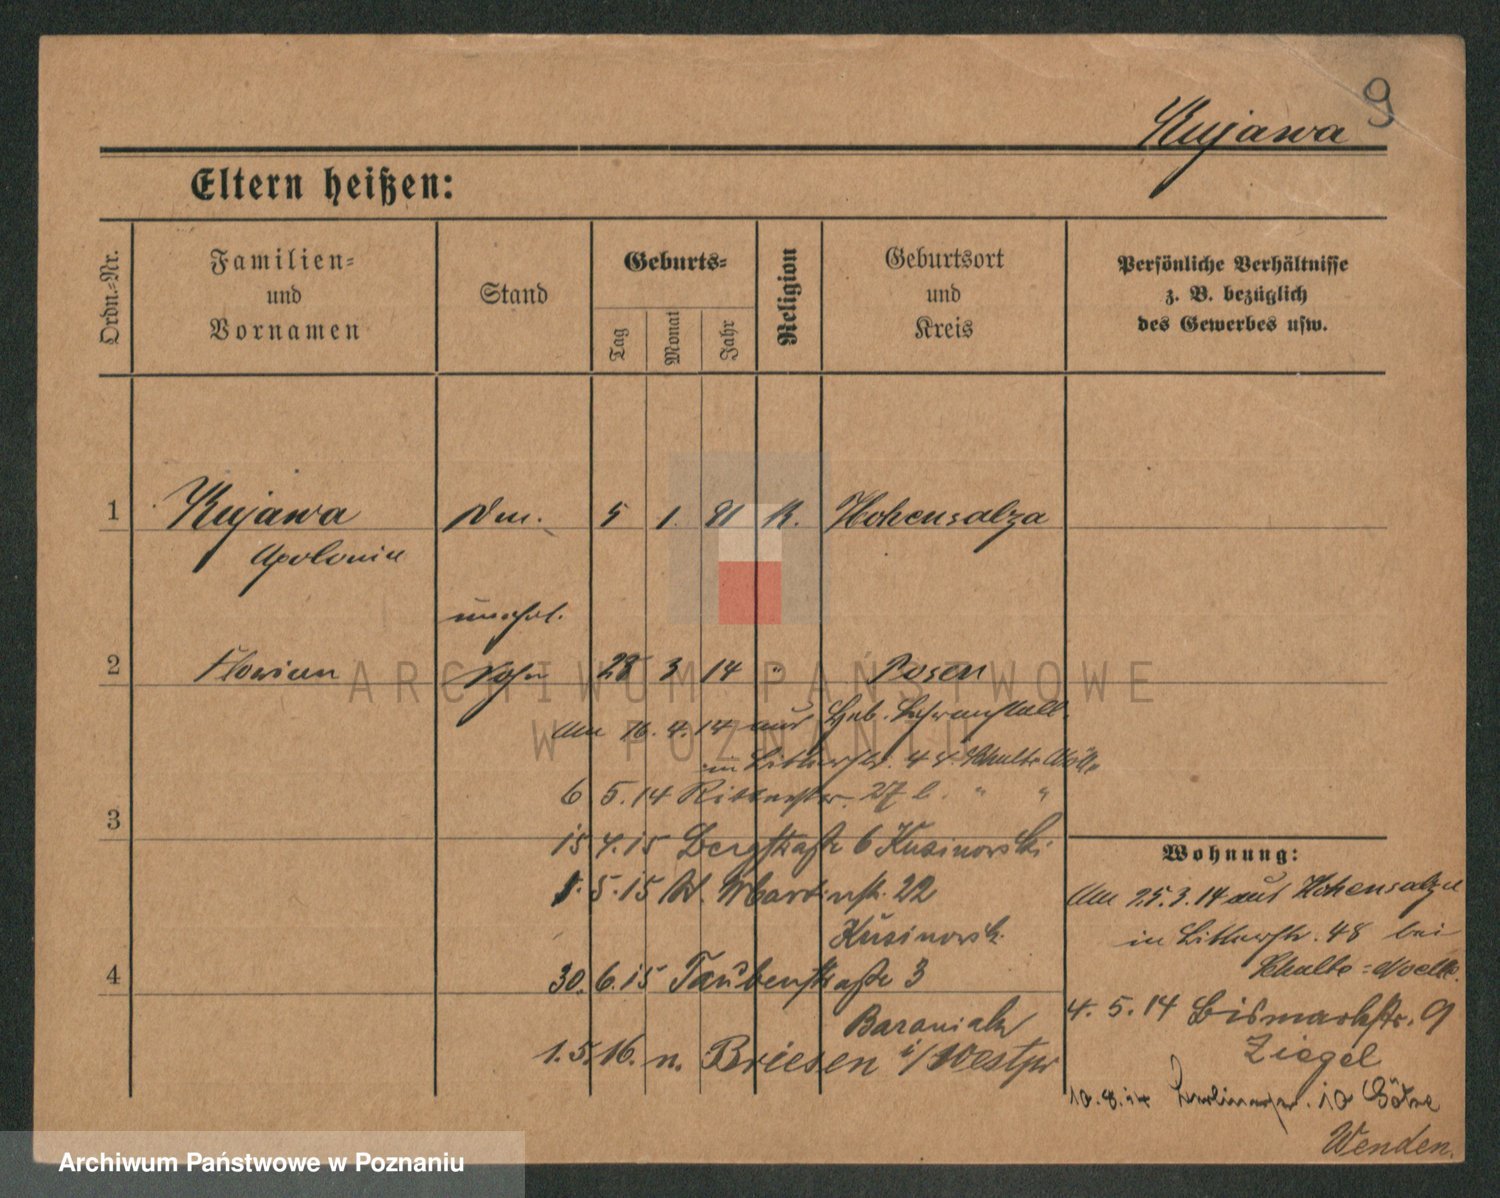 9
Kujawa
Eltern heißen:
Ordn.-Nr.
Familien-
und
Vornamen
Stand
Geburts-
Tag
Monat
Jahr
Religion
Geburtsort
und
Kreis
Persönliche Verhältnisse
z. B. bezüglich
des Gewerbes usw.
1 Kujawa 5 1. 81 K. Hohensalza
Apolonia
unehel.
2 Florian Sohn 28 3 14 " Posen
ARCHIWUM PAŃSTWOWE
W POZNANIU
Am 16. 4. 14 aus Heb. Lehranstalt
in 44 Schulte
6 5. 14 Ritterstr. 27 b. " "
3
15 4. 15 Bergstraße 6 Kusinowski
1. 5. 15 St. Martinstr. 22
Kusinowsk.
4
30. 6. 15 Taubenstraße 3
Baraniak
1. 5. 16. n. Briesen i/Westpr
Wohnung:
Am 25. 3. 14 aus Hohensalza
in 48 bei
Schulte-Noelle
4. 5. 14 Bismarkstr. 9
Ziegel
10. 8. 14 Berlinerstr. 10 Götze
Wenden.
Archiwum Państwowe w Poznaniu